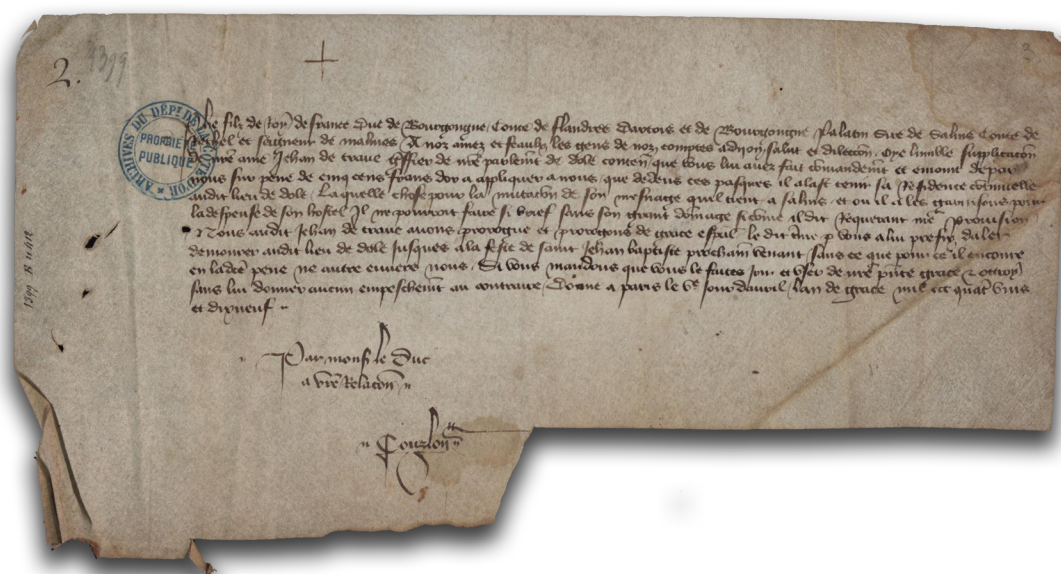 2.
1399
2
ARCHIVES DU DÉPT DE LA CÔTE D'OR
PROPRIÉTÉ
PUBLIQUE
1399 B 11412
filz de Roy de france Duc de Bourgoingne, Conte de flandres Dartois et de Bourgoingne Palatin Sire de Salins Conte de
Rethel et Seigneur de malines A noz amez et feaulx les gens de noz comptes a dijon salut et dilection. Oye lumble supplicacion
de nre ame Jehan de traue Greffier de nre parlemt de dole conten que come lui avez fait comandemt et enioint de par
nous sur pene de cinq cens frans dor a appliquer a nous, que dedens ces pasques il alast tenir sa Residence continuelle
audit lieu de dole. Laquelle chose pour la mutacion de son mesnaige quil tient a salins, et ou il a les garnisons pour
la despense de son hostel Il ne pourroit faire si brief sans son grant domage si come il dit Requerant nre provision
Nous audit Jehan de traue avons prorogue et prorogons de grace espal le dit tme p vous a lui prefix daler
demourer audit lieu de dole Jusques a la feste de saint Jehan baptiste prochain venant sans ce que pour ce il encoure
en ladte pene ne autre envers nous. Si vous mandons que vous le faites Joir et user de nre pnte grace & ottroy
sans lui donner aucun empeschemt au contraire, Donne a paris le ve Jour davril, lan de grace mil ccc quat vins
et dixneuf
Par mons le Duc
a vre Relacon